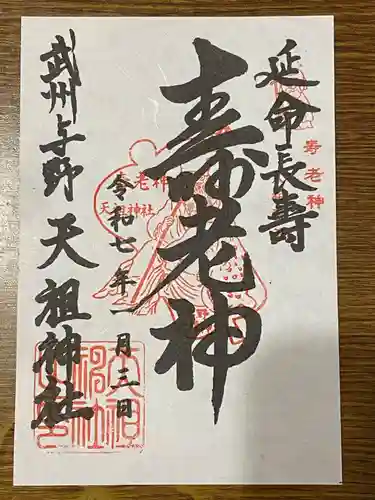 延命長壽
寿老神
壽老神
寿老神
天祖神社
令和七年一月三日
武州与野天祖神社